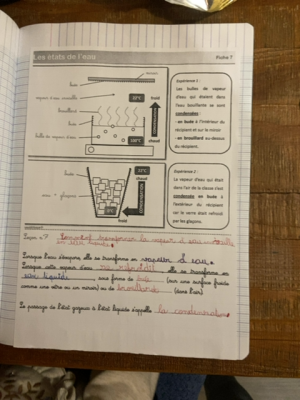 Les états de l'eau
Fiche 7
miroir
buée
vapeur d'eau invisible
brouillard
buée
bulle de vapeur d'eau
froid
chaud
100°C
Expérience 1 :
Les bulles de vapeur
d'eau qui étaient dans
l'eau bouillante se sont
condensées :
- en buée à l'intérieur du
récipient et sur le miroir
- en brouillard au-dessus
du récipient.
buée
eau + glaçons
chaud
froid
Expérience 2 :
La vapeur d'eau qui était
dans l'air de la classe s'est
condensée en buée à
l'extérieur du récipient
car le verre était refroidi
par les glaçons.
Leçon n°7 : Comment transformer la vapeur d'eau
en eau liquide
Lorsque l'eau s'évapore, elle se transforme en vapeur d'eau.
Lorsque cette vapeur d'eau se refroidit, elle se transforme en
eau liquide, sous forme de buée (sur une surface froide
comme une vitre ou un miroir) ou de brouillard (dans l'air).
Le passage de l'état gazeux à l'état liquide s'appelle la condensation.